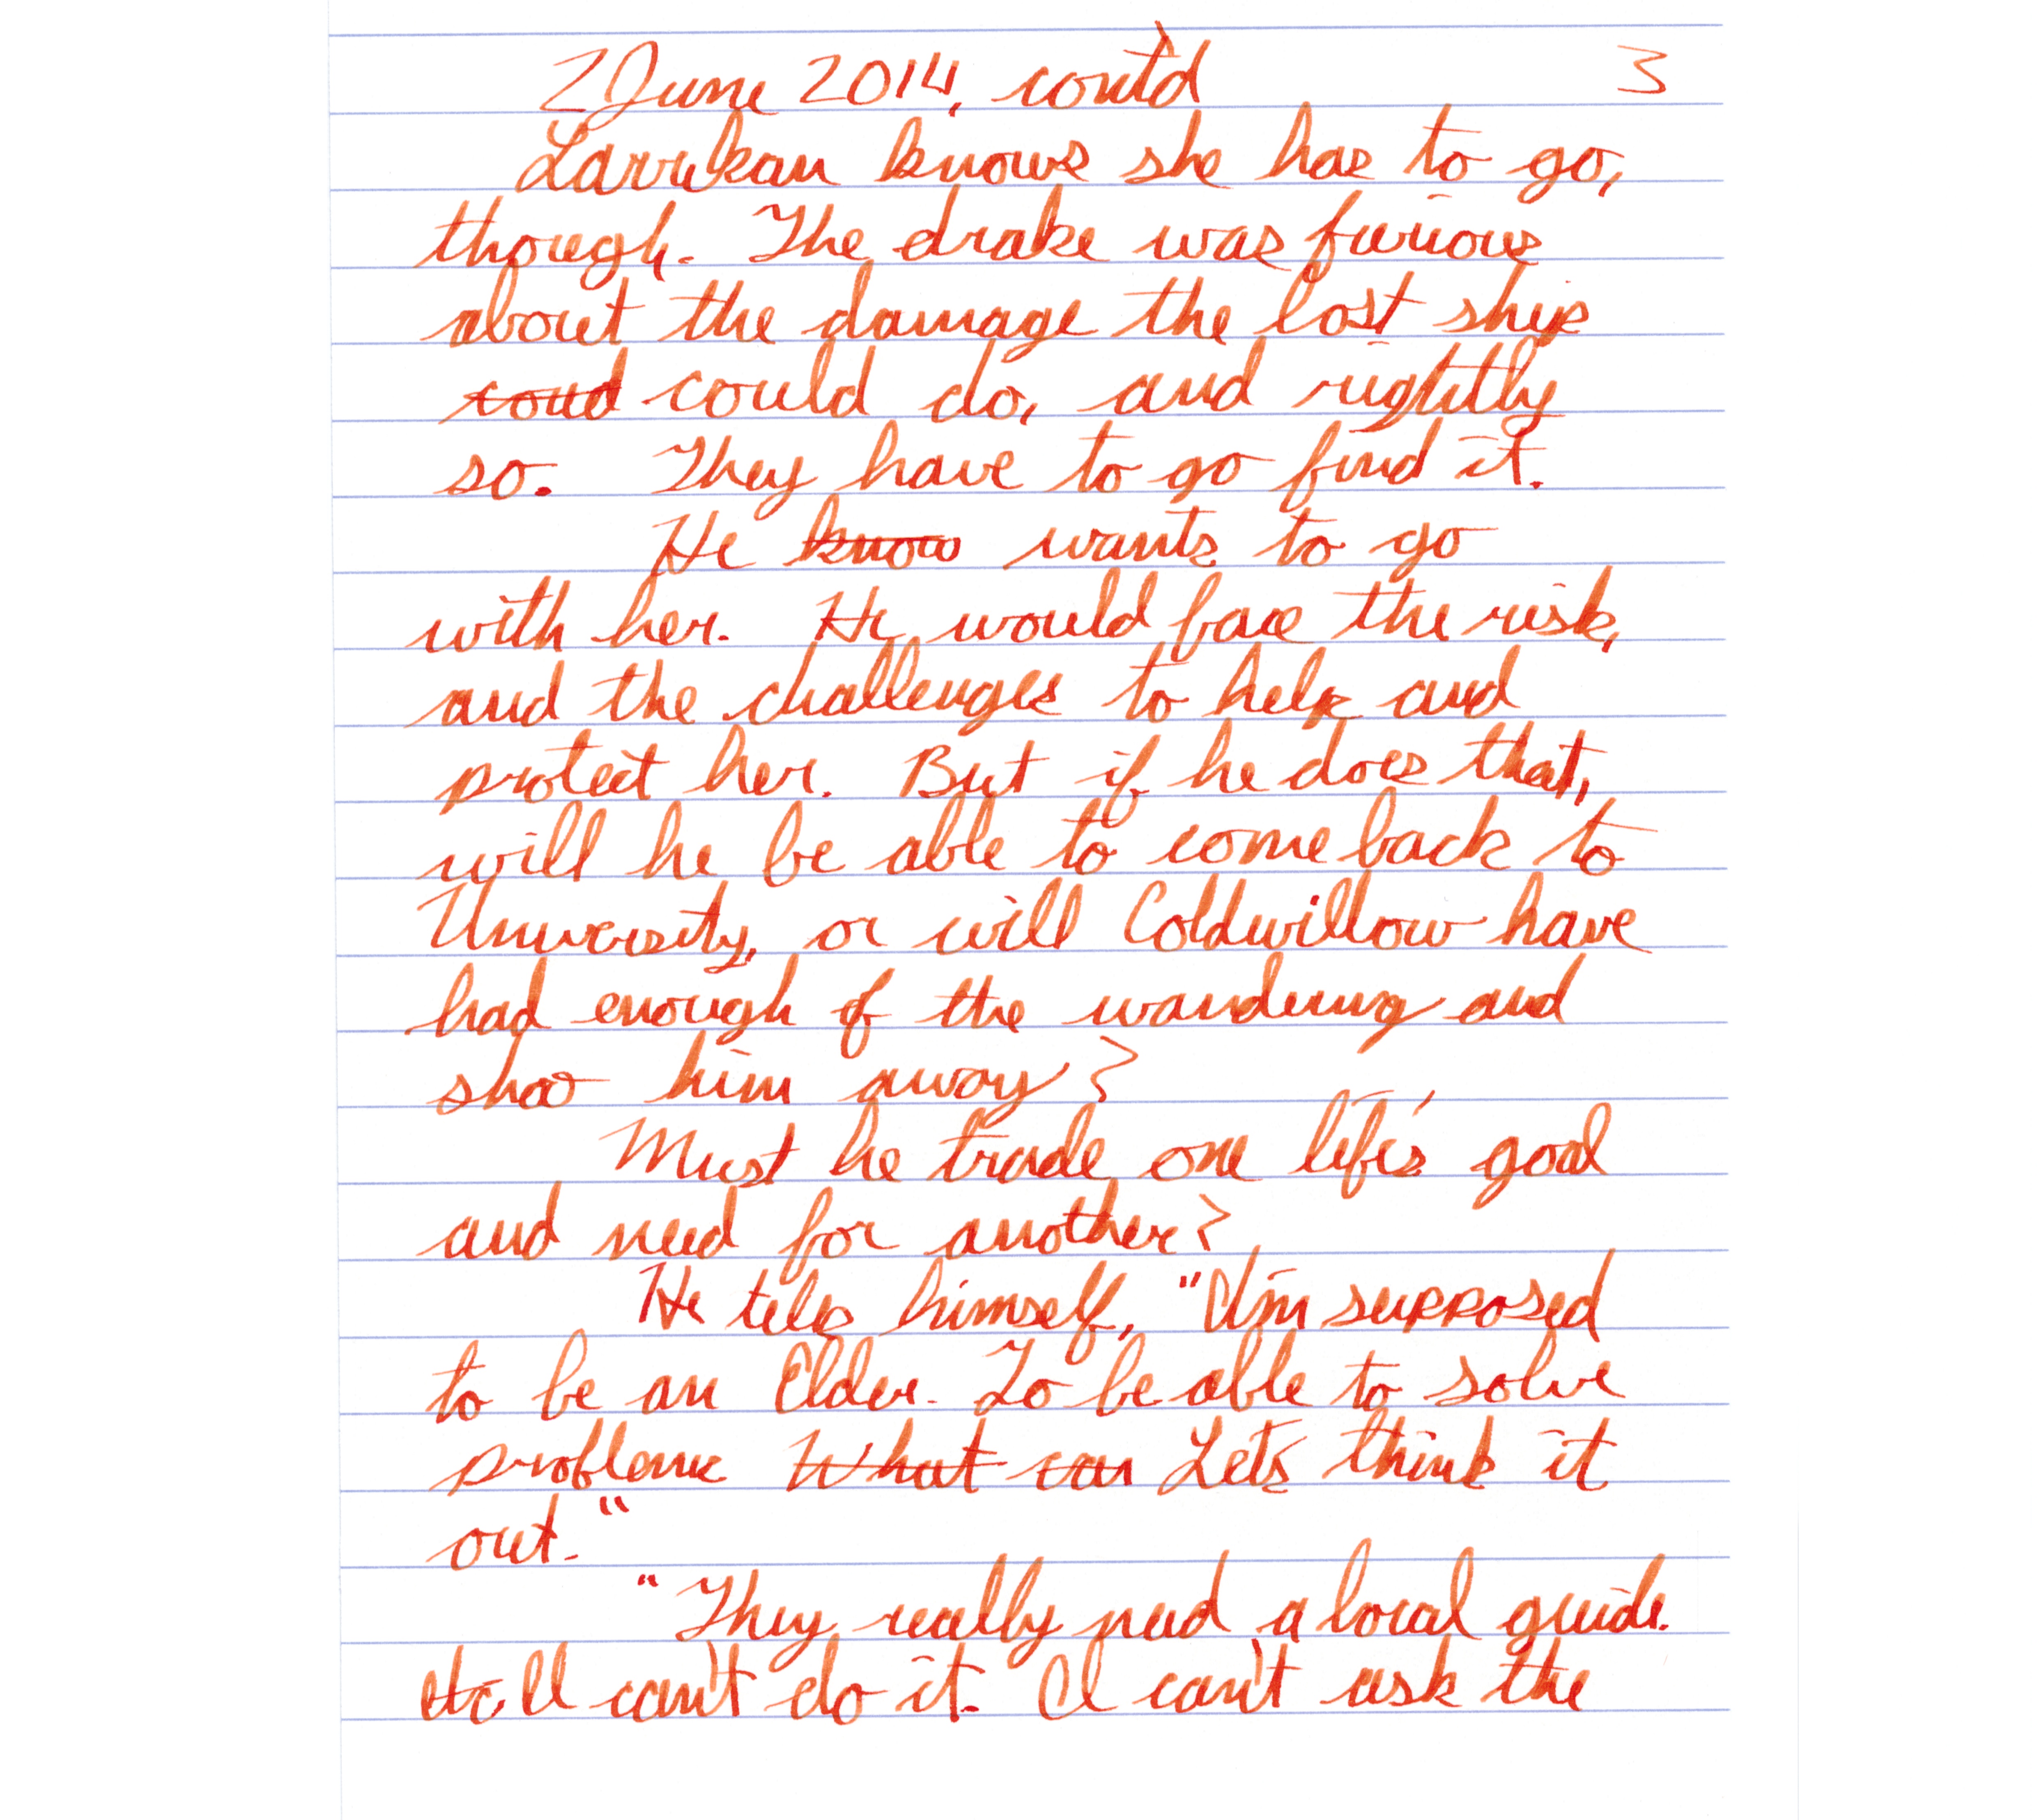 2 June 2014, cont'd 3
Larrikan knows she has to go,
though. The drake was furious
about the damage the lost ship
coud could do, and rightly
so. They have to go find it.
He know wants to go
with her. He would face the risk,
and the challenges to help and
protect her. But if he does that,
will he be able to come back to
University, or will Coldwillow have
had enough of the wandering and
shoo him away?
Must he trade one life's goal
and need for another?
He tells himself, "I'm supposed
to be an Elder. To be able to solve
problems What can Let's think it
out."
"They really need a local guide.
I can't do it. I can't ask the